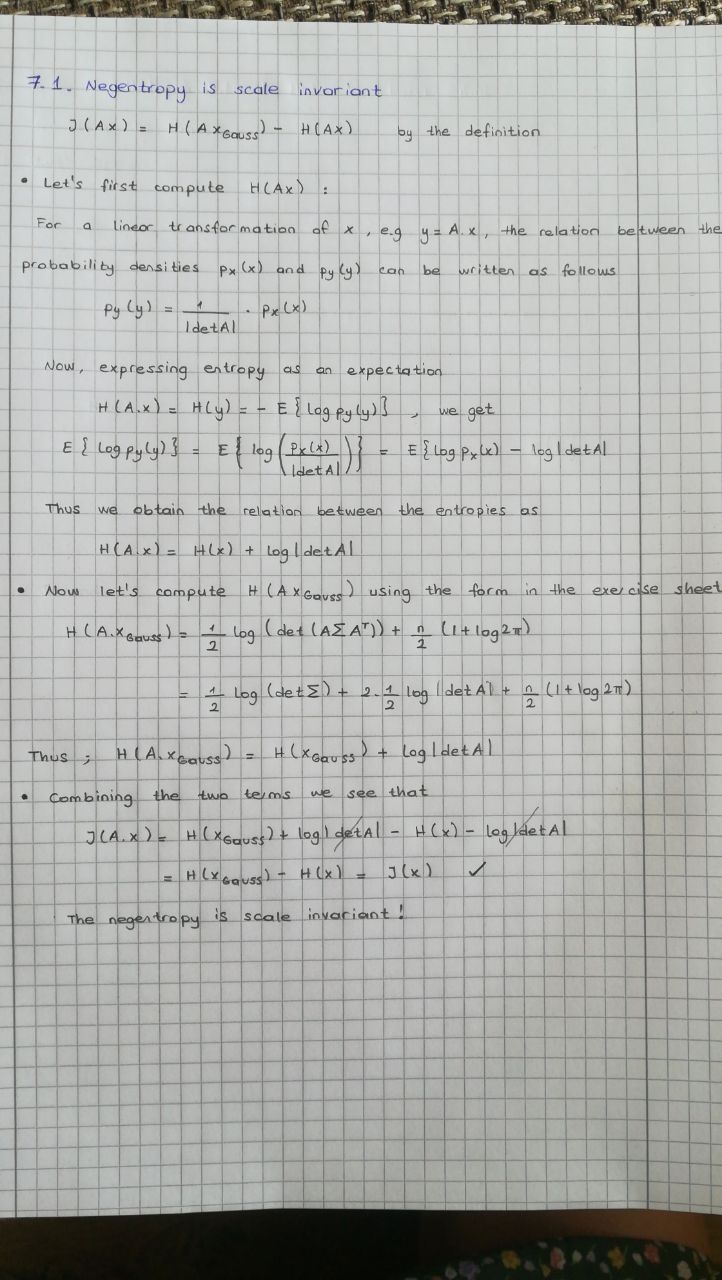 7.1. Negentropy is scale invariant
J(Ax) = H(Ax_Gauss) - H(Ax) by the definition
• Let's first compute H(Ax) :
For a linear transformation of x, e.g y = A.x, the relation between the
probability densities px(x) and py(y) can be written as follows
py(y) = 1/|detA| . px(x)
Now, expressing entropy as an expectation
H(A.x) = H(y) = - E{log py(y)} , we get
E{log py(y)} = E{log(px(x)/|detA|)} = E{log px(x) - log|detA|
Thus we obtain the relation between the entropies as
H(A.x) = H(x) + log|detA|
• Now let's compute H(Ax_Gauss) using the form in the exercise sheet
H(A.x_Gauss) = 1/2 log(det(AΣA^T)) + n/2 (1+log2π)
= 1/2 log(detΣ) + 2.1/2 log|detA| + n/2 (1+log2π)
Thus ; H(A.x_Gauss) = H(x_Gauss) + log|detA|
• Combining the two terms we see that
J(A.x) = H(x_Gauss) + log|detA| - H(x) - log|detA|
= H(x_Gauss) - H(x) = J(x) ✓
The negentropy is scale invariant!